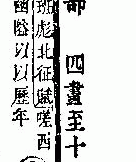 部　四畫至十
班彪北征賦嗟西
幽谿以以歷年